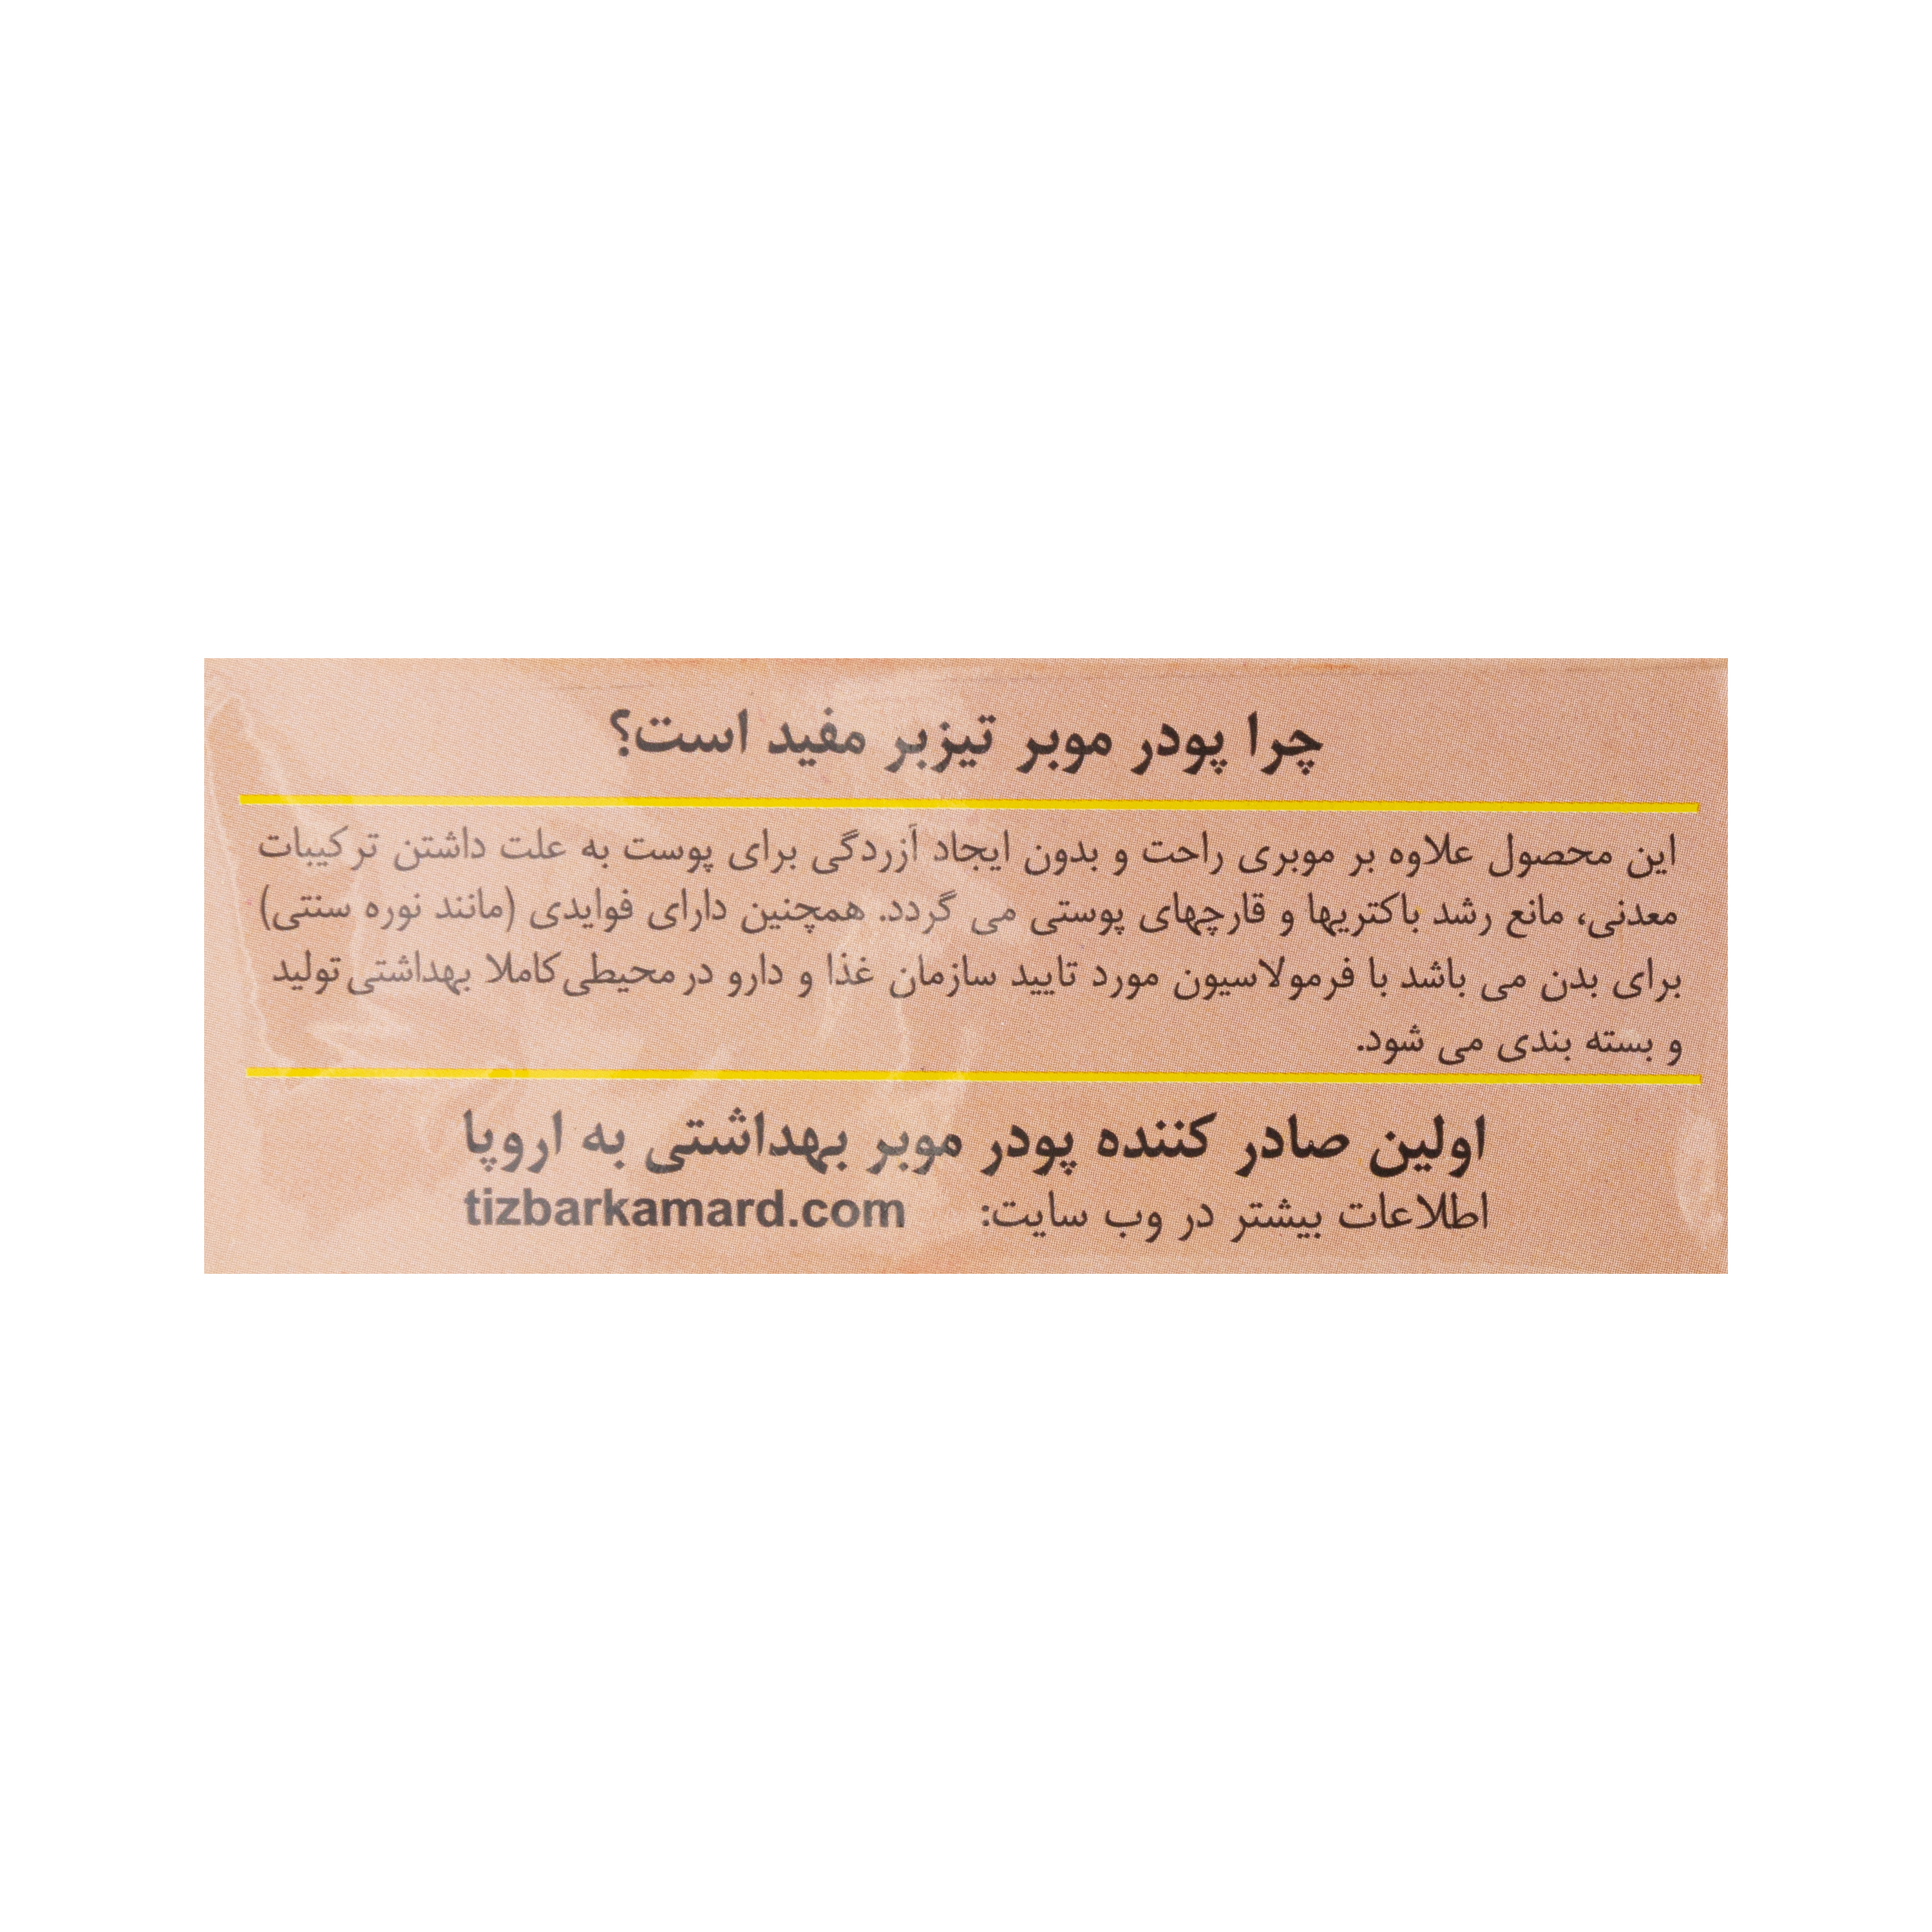 چرا پودر موبر تیزبر مفید است؟
این محصول علاوه بر موبری راحت و بدون ایجاد آزردگی برای پوست به علت داشتن ترکیبات
معدنی، مانع رشد باکتریها و قارچهای پوستی می گردد. همچنین دارای فوایدی (مانند نوره سنتی)
برای بدن می باشد با فرمولاسیون مورد تایید سازمان غذا و دارو در محیطی کاملا بهداشتی تولید
و بسته بندی می شود.
اولین صادر کننده پودر موبر بهداشتی به اروپا
اطلاعات بیشتر در وب سایت: tizbarkamard.com